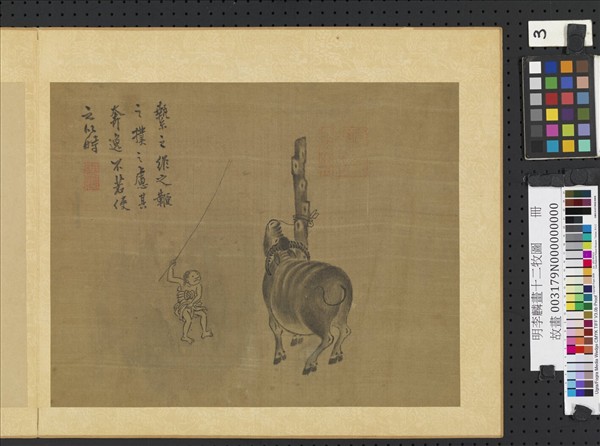 縶之維之鞭
之撲之慮其
奔逸不若使
之以時
3
明李麟畫十二牧圖　冊
故畫 003179N000000000